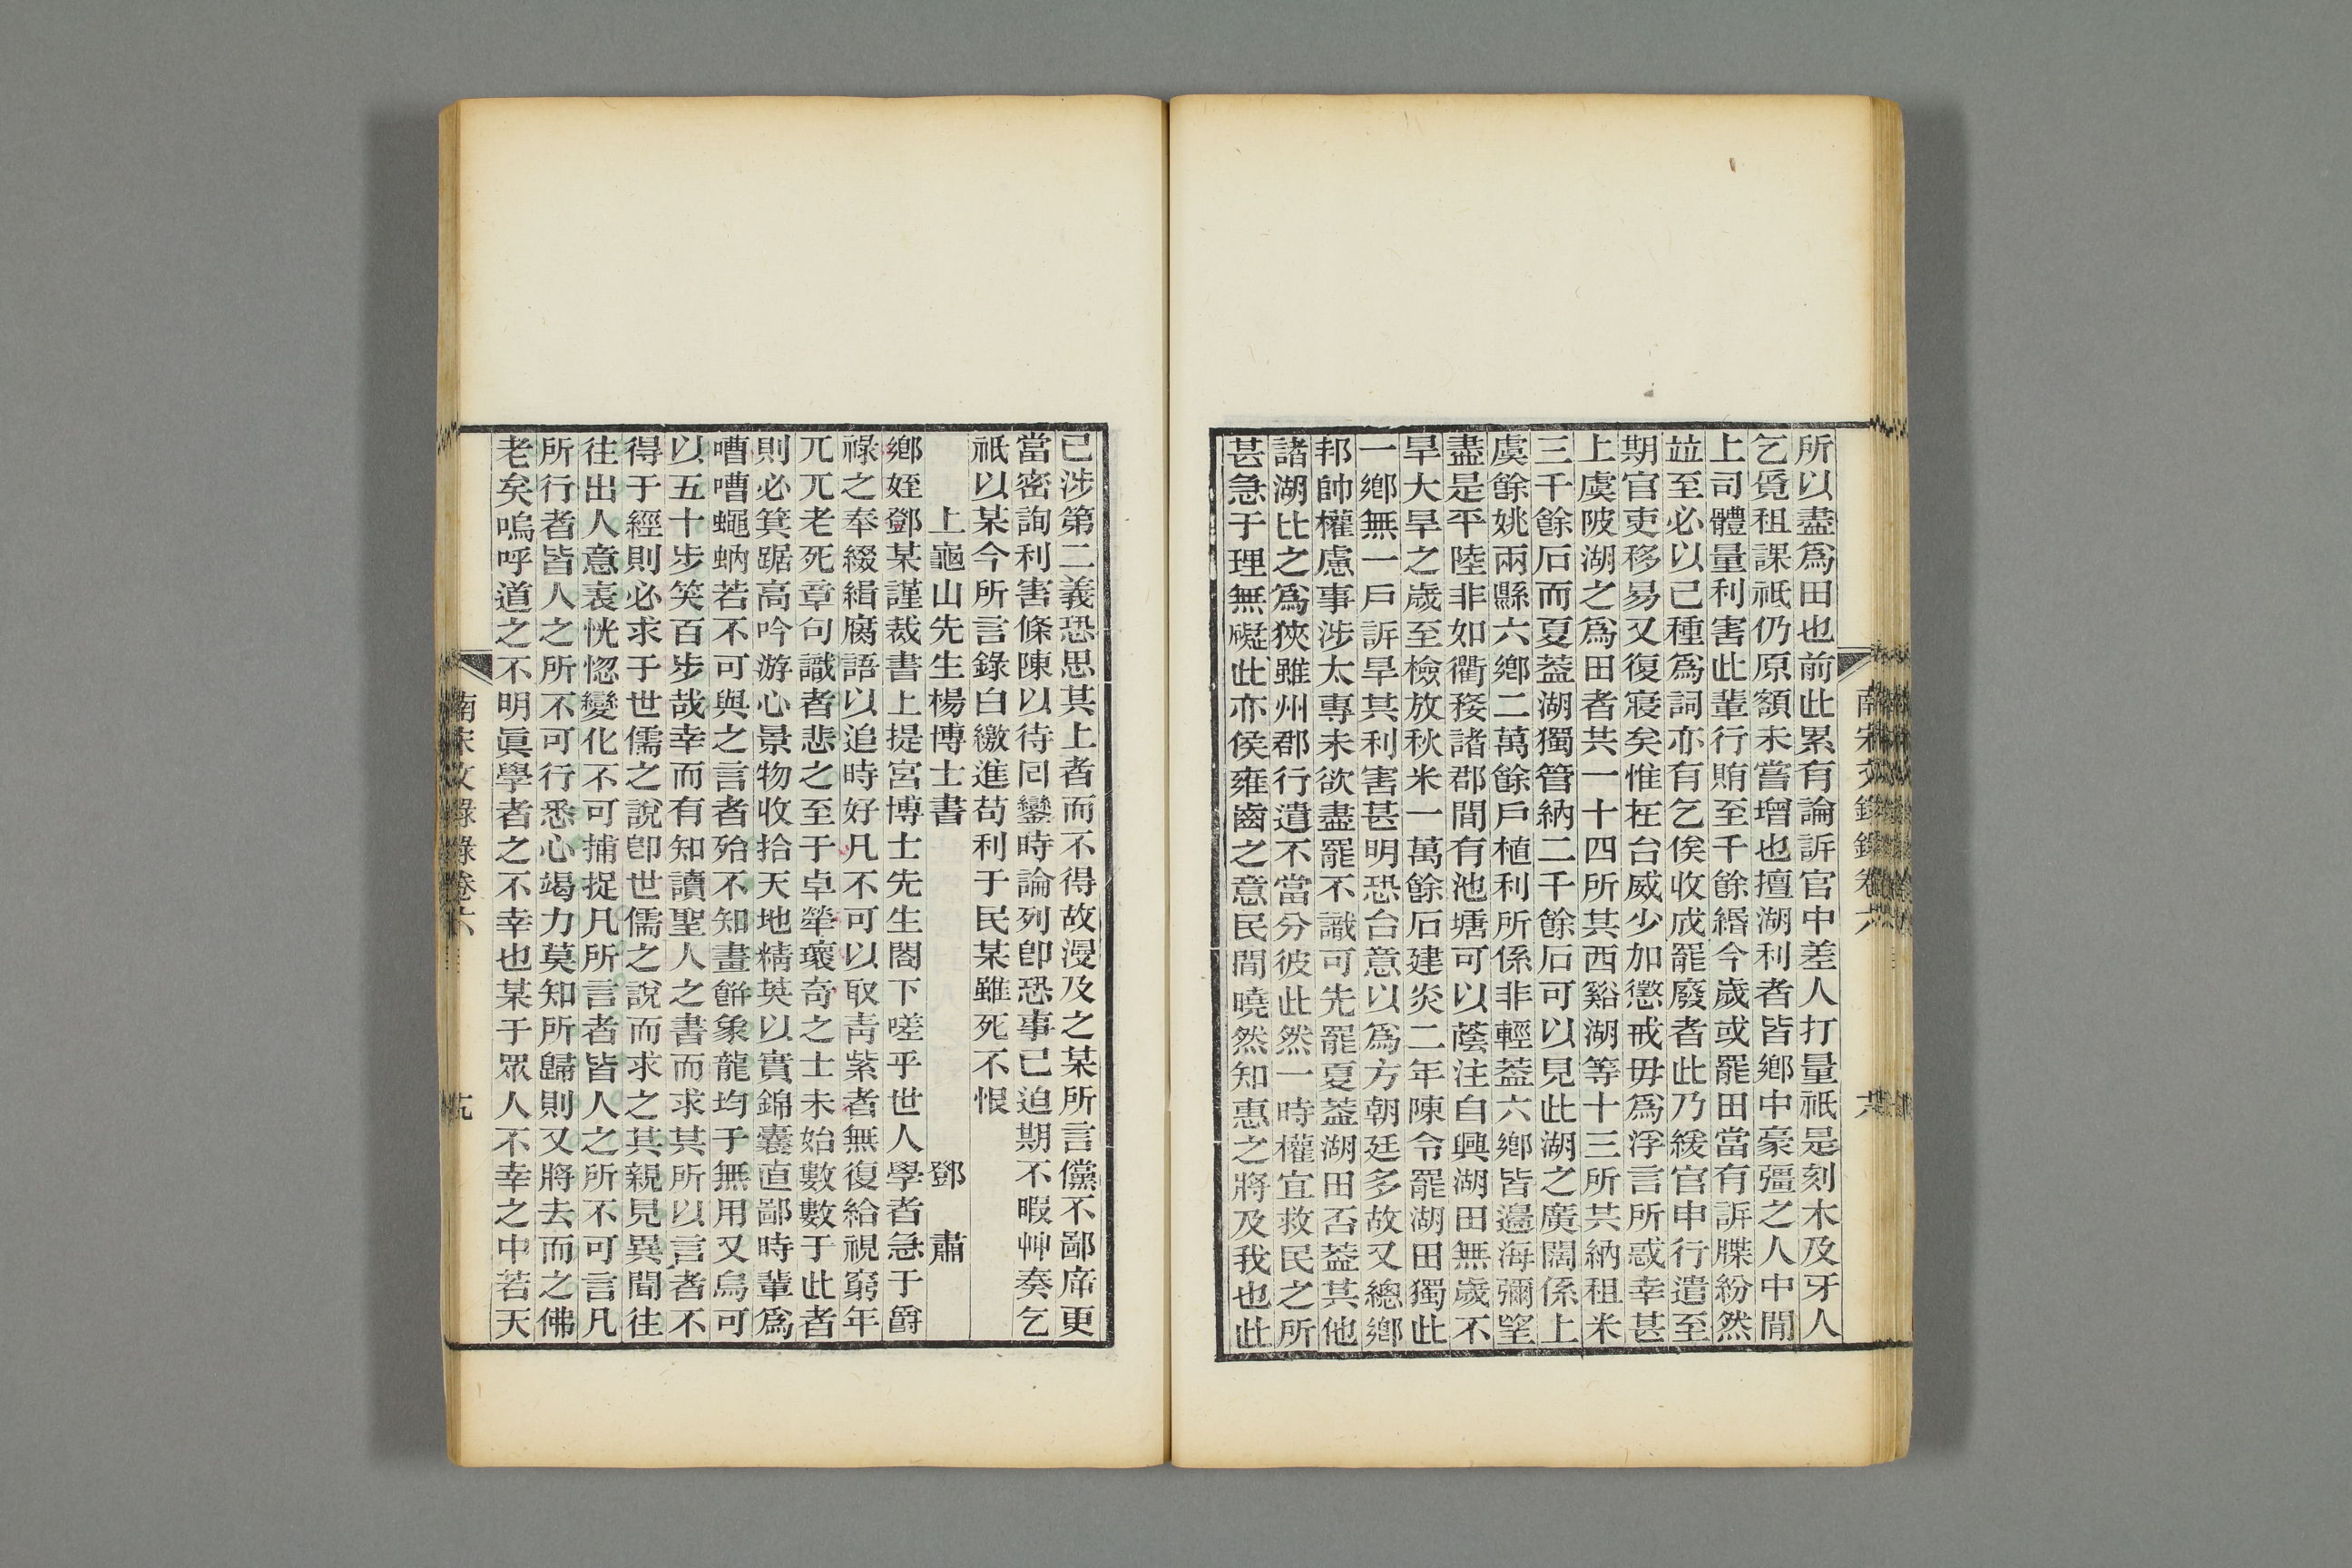 所以盡爲田也前此累有論訴官中差人打量祇是刻木及牙人
乞覓租課祇仍原額未嘗增也擅湖利者皆鄉中豪彊之人中閒
上司體量利害此輩行賄至千餘緡今歲或罷田當有訴牒紛然
竝至必以己種爲詞亦有乞俟收成罷廢者此乃緩官申行遣至
期官吏移易又復寢矣惟在台威少加懲戒毋爲浮言所惑幸甚
上虞陂湖之爲田者共一十四所其西谿湖等十三所共納租米
三千餘石而夏葢湖獨管納二千餘石可以見此湖之廣闊係上
虞餘姚兩縣六鄉二萬餘戶植利所係非輕葢六鄉皆邉海彌望
盡是平陸非如衢婺諸郡間有池塘可以蔭注自興湖田無歲不
旱大旱之歲至檢放秋米一萬餘石建炎二年陳令罷湖田獨此
一鄉無一戶訴旱其利害甚明恐台意以爲方朝廷多故又總鄉
邦帥權慮事涉太專未欲盡罷不識可先罷夏葢湖田否葢其他
諸湖比之爲狹雖州郡行遣不當分彼此然一時權宜救民之所
甚急于理無礙此亦侯雍齒之意民間曉然知惠之將及我也此
南宋文錄錄卷六
已涉第二義恐思其上者而不得故漫及之某所言儻不鄙席更
當密詢利害條陳以待回鑾時論列卽恐事已迫期不暇艸奏乞
祇以某今所言錄白繳進苟利于民某雖死不恨
上龜山先生楊博士書
鄧肅
鄉姪鄧某謹裁書上提宮博士先生閤下嗟乎世人學者急于爵
祿之奉綴緝腐語以追時好凡不可以取青紫者無復給視窮年
兀兀老死章句識者悲之至于卓犖瓌奇之士未始數數于此者
則必箕踞高吟游心景物收拾天地精英以實錦囊直鄙時輩爲
嘈嘈蠅蚋若不可與之言者殆不知畫餠象龍均于無用又烏可
以五十步笑百步哉幸而有知讀聖人之書而求其所以言者不
得于經則必求于世儒之說卽世儒之說而求之其親見異聞往
往出人意表恍惚變化不可捕捉凡所言者皆人之所不可言凡
所行者皆人之所不可行悉心竭力莫知所歸則又將去而之佛
老矣嗚呼道之不明眞學者之不幸也某于眾人不幸之中若天
南宋文錄錄卷六